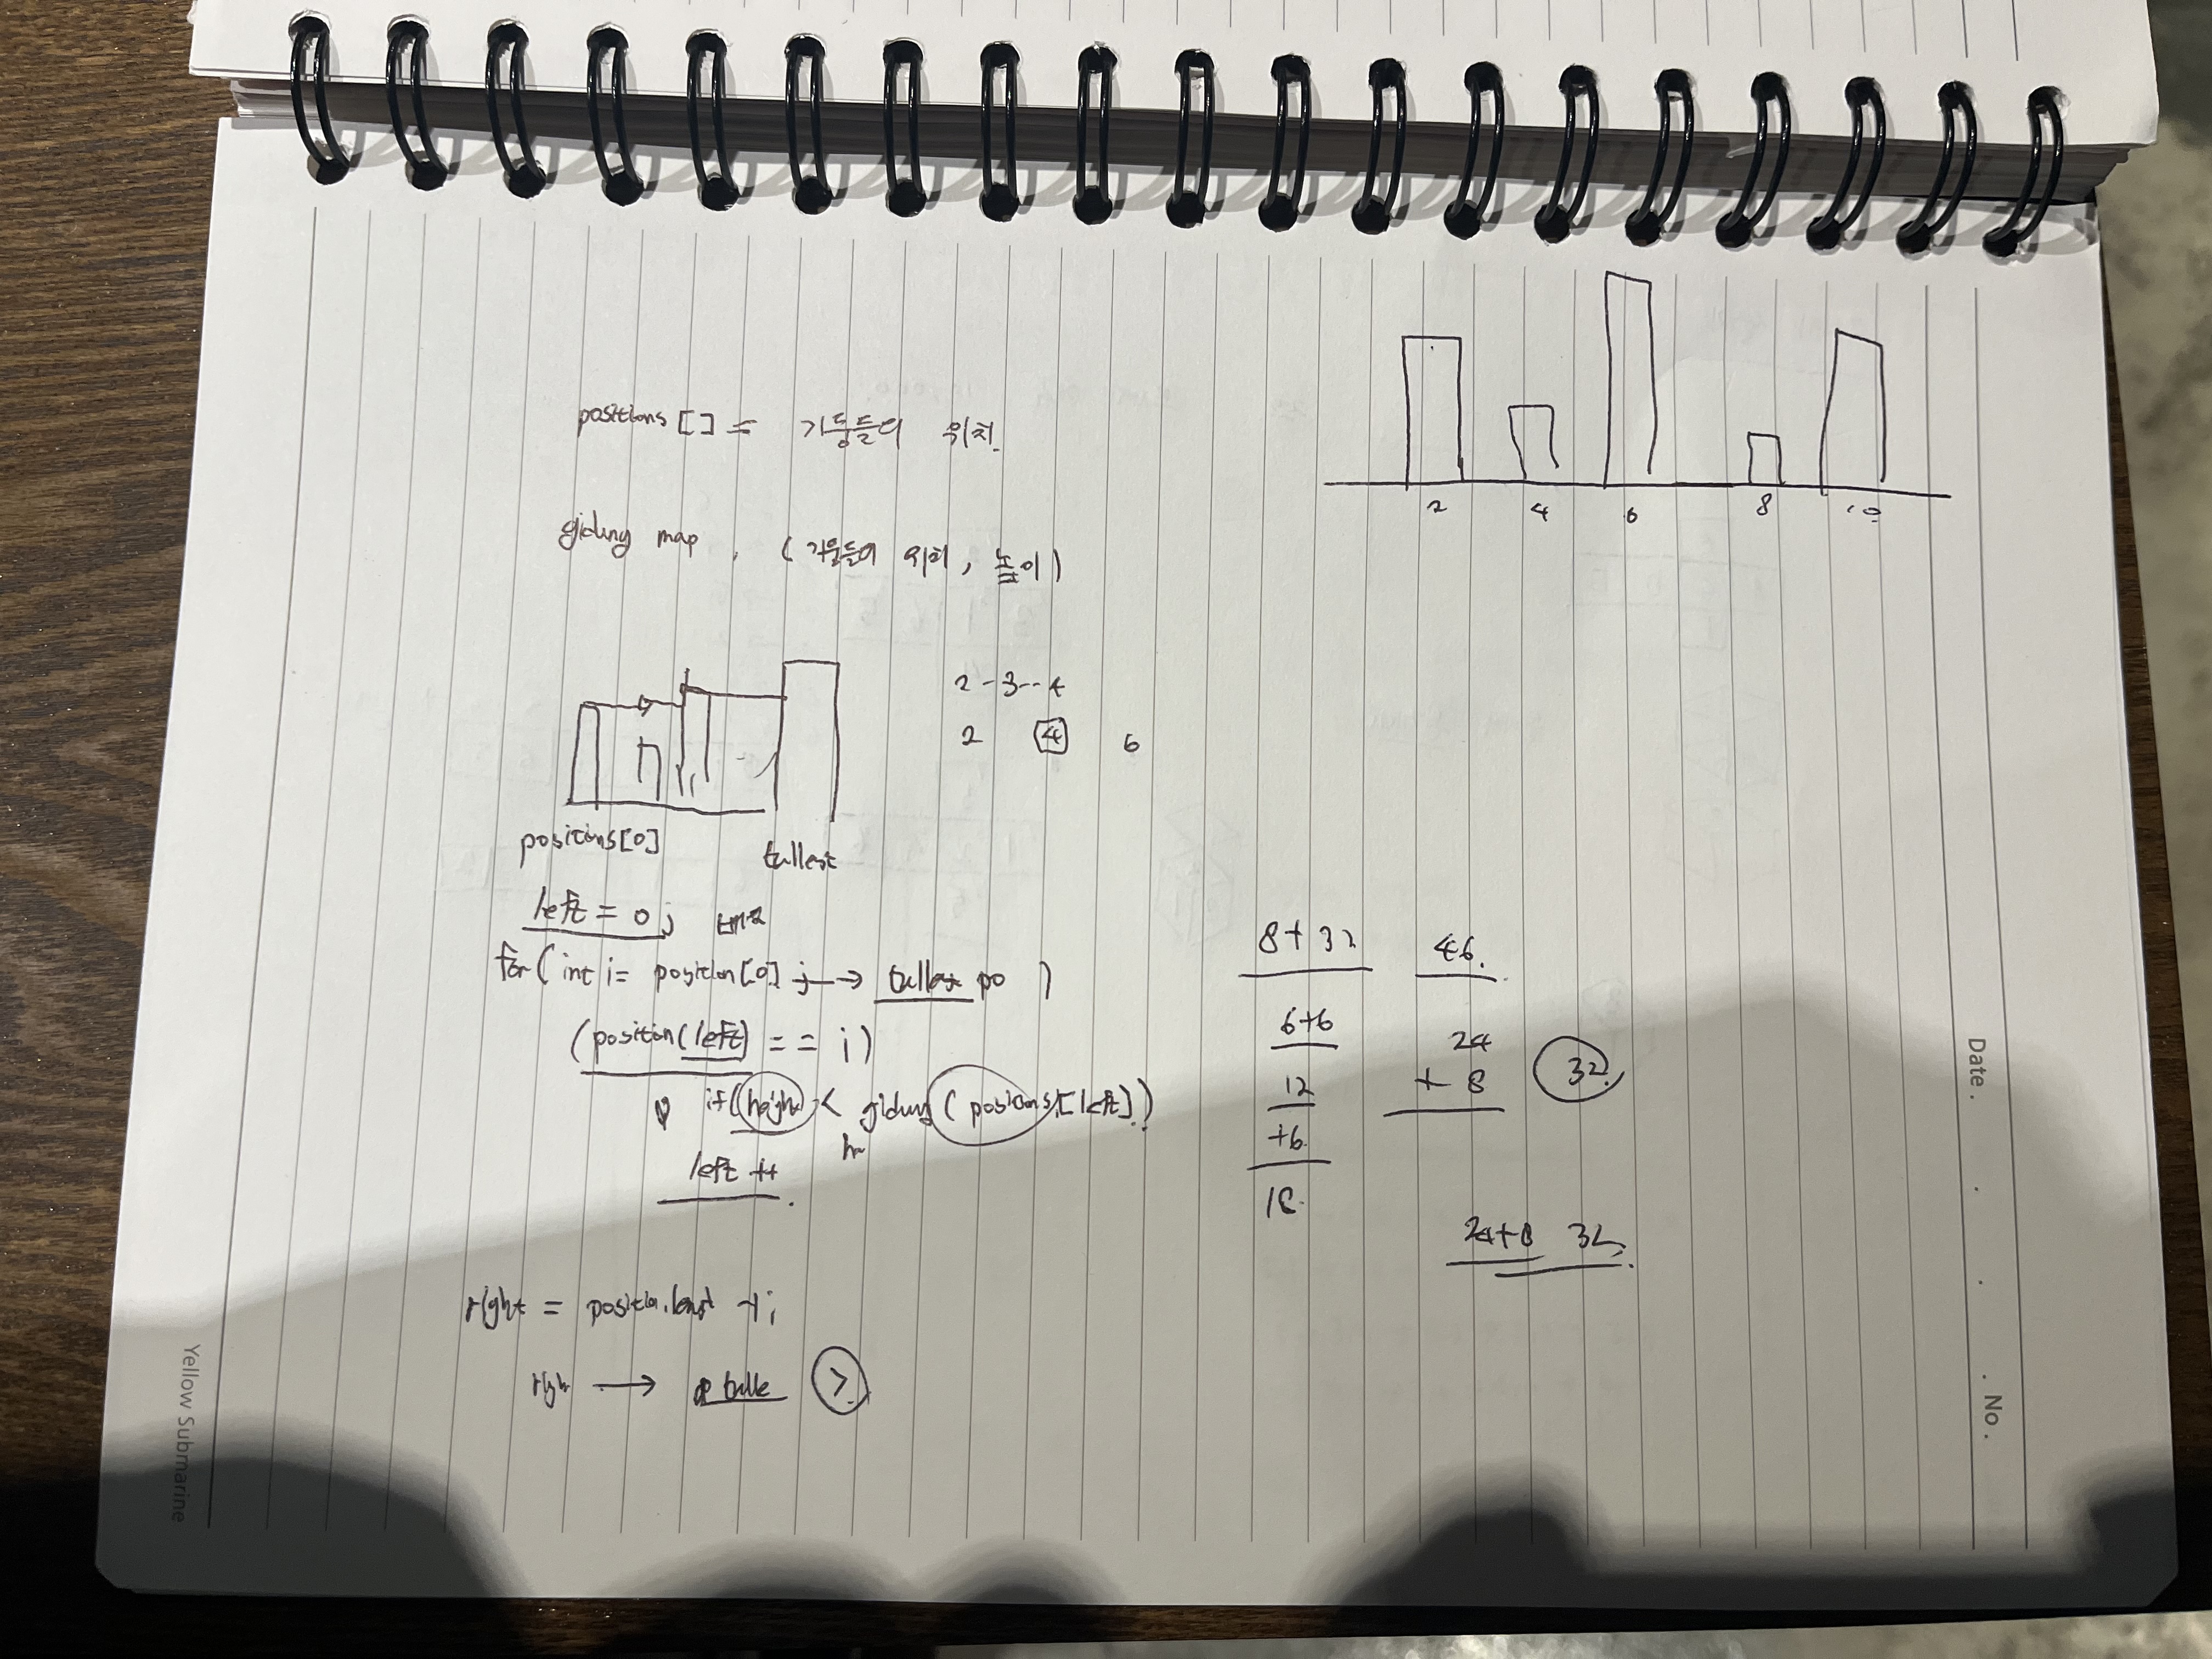 positions [ ] = 기둥들의 위치.
gidung map , (기둥들의 위치, 높이)
2 4 6 8 10
2 - 3 -- 4
2 4 6
positions[0]
tallest
left = 0;
for ( int i = position[0] ; → tallest po )
(position(left) == i)
if (height < gidung ( positions[left] )
left ++
right = position. -1;
righ → talle >
8 + 32
6+6
12
+6
18
46.
24
+ 8
32
24+8 32
Date . . . No.
Yellow Submarine